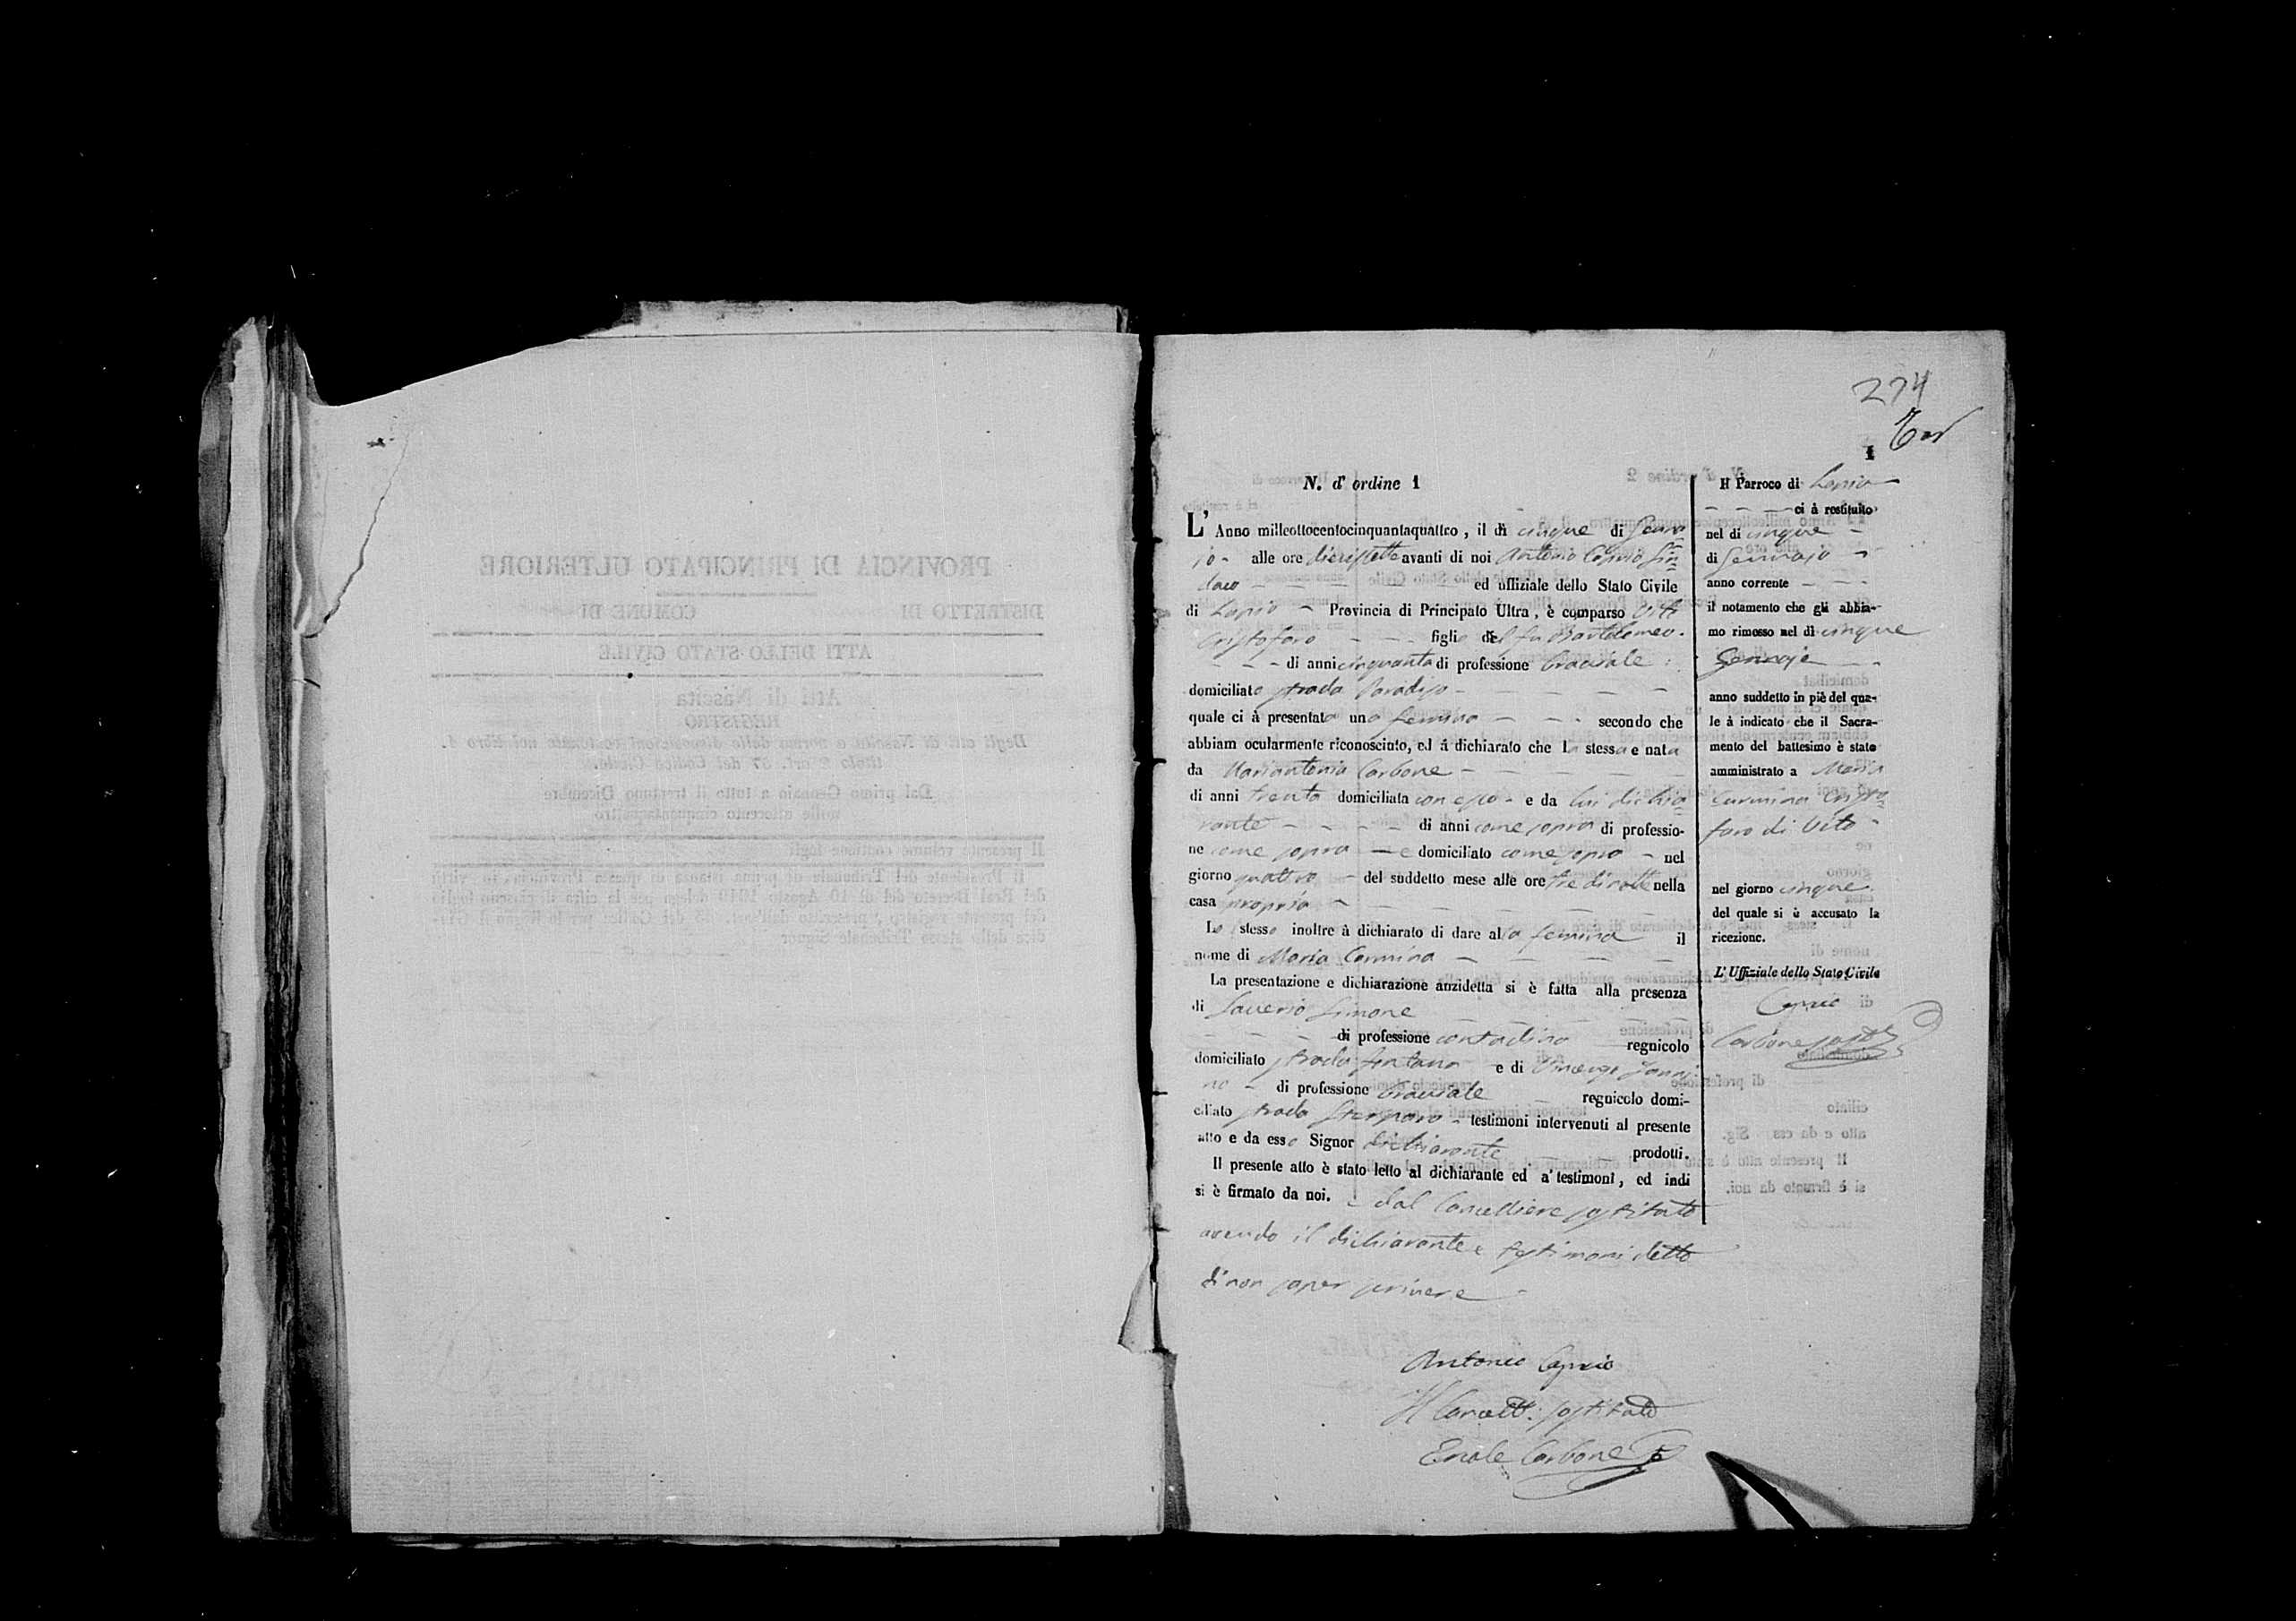 274
1
N. d' ordine 1
L' Anno milleottocentocinquantaquattro, il dì cinque di Genna=
jo - alle ore diecisette avanti di noi Antonio Caprio Sin=
daco - ed uffiziale dello Stato Civile
di Lapio - Provincia di Principato Ultra, è comparso Vito
Cristofaro - figlio del fu Bartolomeo.
- di anni cinquanta di professione bracciale
domiciliato strada Paradiso -
quale ci à presentato una femina - secondo che
abbiam ocularmente riconosciuto, ed à dichiarato che la stessa e nata
da Mariantonia Carbone -
di anni trenta domiciliata con esso - e da lui dichia=
rante - di anni come sopra di professio-
ne come sopra - e domiciliato come sopra - nel
giorno quattro - del suddetto mese alle ore tre di notte nella
casa propria -
Lo stesso inoltre à dichiarato di dare alla femina il
nome di Maria Carmina -
La presentazione e dichiarazione anzidetta si è fatta alla presenza
di Saverio Simone
- di professione contadino regnicolo
domiciliato strada fontana - e di Vincenzo
no - di professione bracciale regnicolo domi-
ciliato strada - testimoni intervenuti al presente
atto e da esso Signor dichiarante prodotti.
Il presente atto è stato letto al dichiarante ed a' testimonî, ed indi
si è firmato da noi. - dal Cancelliere sostituto
avendo il dichiarante e testimoni detto
di non saper scrivere -
Antonio Caprio
Il Cancell: sostituto
Ercole Carbone
Il Parroco di Lapio -
- ci à restituito
nel di cinque -
di Gennajo -
anno corrente -
il notamento che gli abbia-
mo rimesso nel dì cinque
Gennajo -
anno suddetto in piè del qua-
le à indicato che il Sacra-
mento del battesimo è stato
amministrato a Maria
Carmina Cristo=
faro di Vito -
nel giorno cinque
del quale si è accusato la
ricezione.
L' Uffiziale dello Stato Civile
Caprio
Carbone
PROVINCIA DI PRINCIPATO ULTERIORE
DISTRETTO DI COMUNE DI
ATTI DELLO STATO CIVILE
Atti di Nascita
REGISTRO
Degli atti di Nascita a norma delle disposizioni contenute nel libro 1.
titolo 2 art. 57 del Codice Civile.
Dal primo Gennaio a tutto il trentuno Dicembre
mille ottocento cinquantaquattro
Il presente volume contiene fogli